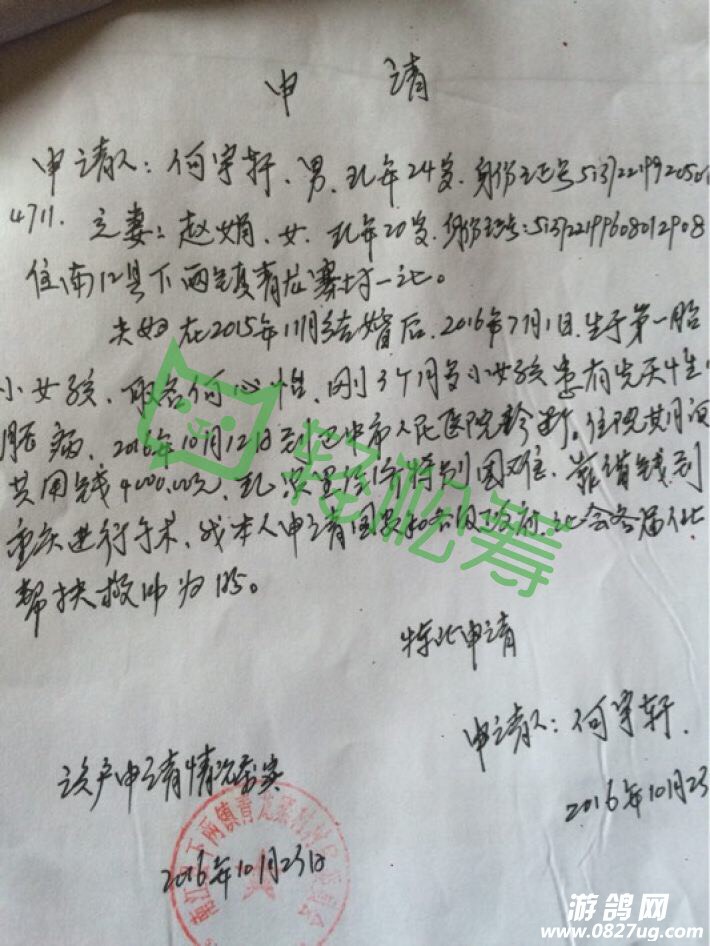 申请
申请人：何宇轩、男、现年24岁、身份证号5137221992050
4711.之妻：赵娟、女、现年20岁、身份证号:513722199608012908
住南江县下两镇青龙寨村一社。
夫妇在2015年11月结婚后、2016年7月1日、生于第一胎
小女孩、取名何心怡、刚3个月多小女孩患有先天性
胆病、2016年10月12日到巴中市人民医院诊断、住院其月间
共用钱4000.00元、现家里经济特别困难、靠借钱到
重庆进行手术、我本人申请国家和各级政府、社会各届人士
帮扶救助为盼。
特此申请
申请人：何宇轩.
2016年10月23
该户申请情况属实
2016年10月23日
南江县下两镇青龙寨村村民委员会
轻松筹
游鸽网
www.0827ug.com